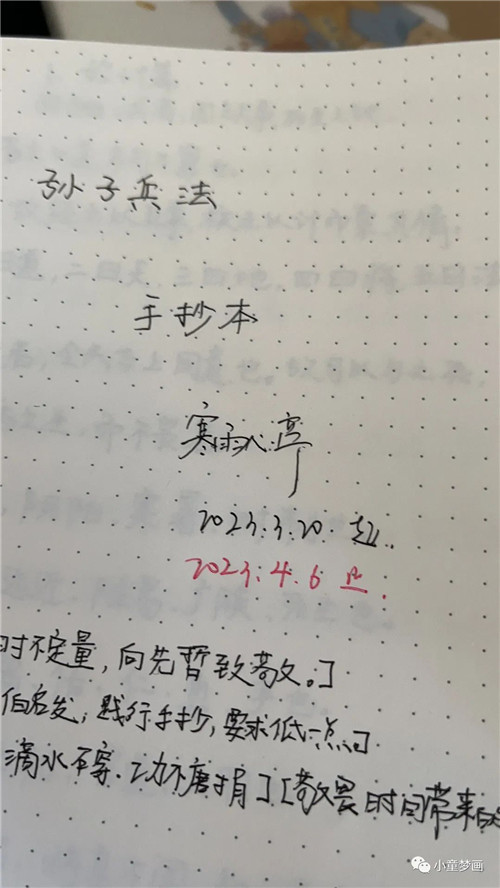 孙子兵法
手抄本
寒
2023.3.20.起.
2023.4.6止.
时不定量,向先哲致敬。]
伯启发,践行手抄,要求低一点]
滴水石穿.功不唐捐][敬畏时间带来的
小童梦画